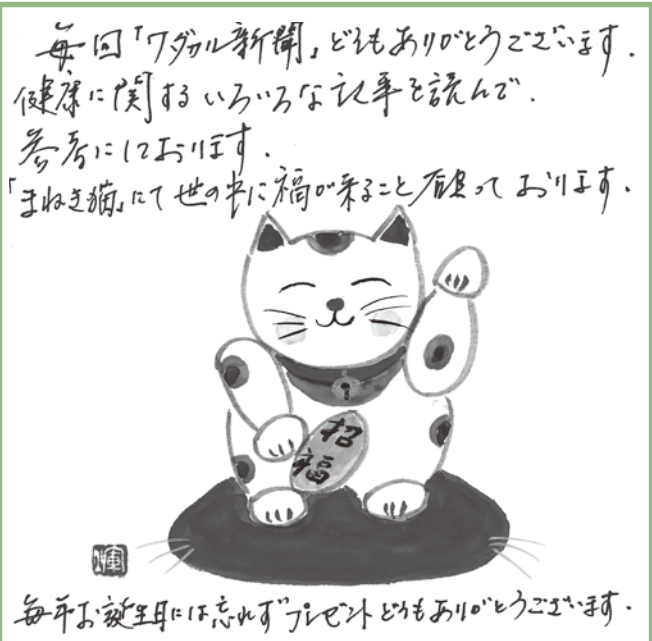 毎回「ワダカル新聞」どうもありがとうございます.
健康に関するいろいろな記事を読んで.
参考にしております.
「まねき猫」にて世の中に福が来ること願っております.
招
福
毎年お誕生月には忘れずプレゼントどうもありがとうございます.